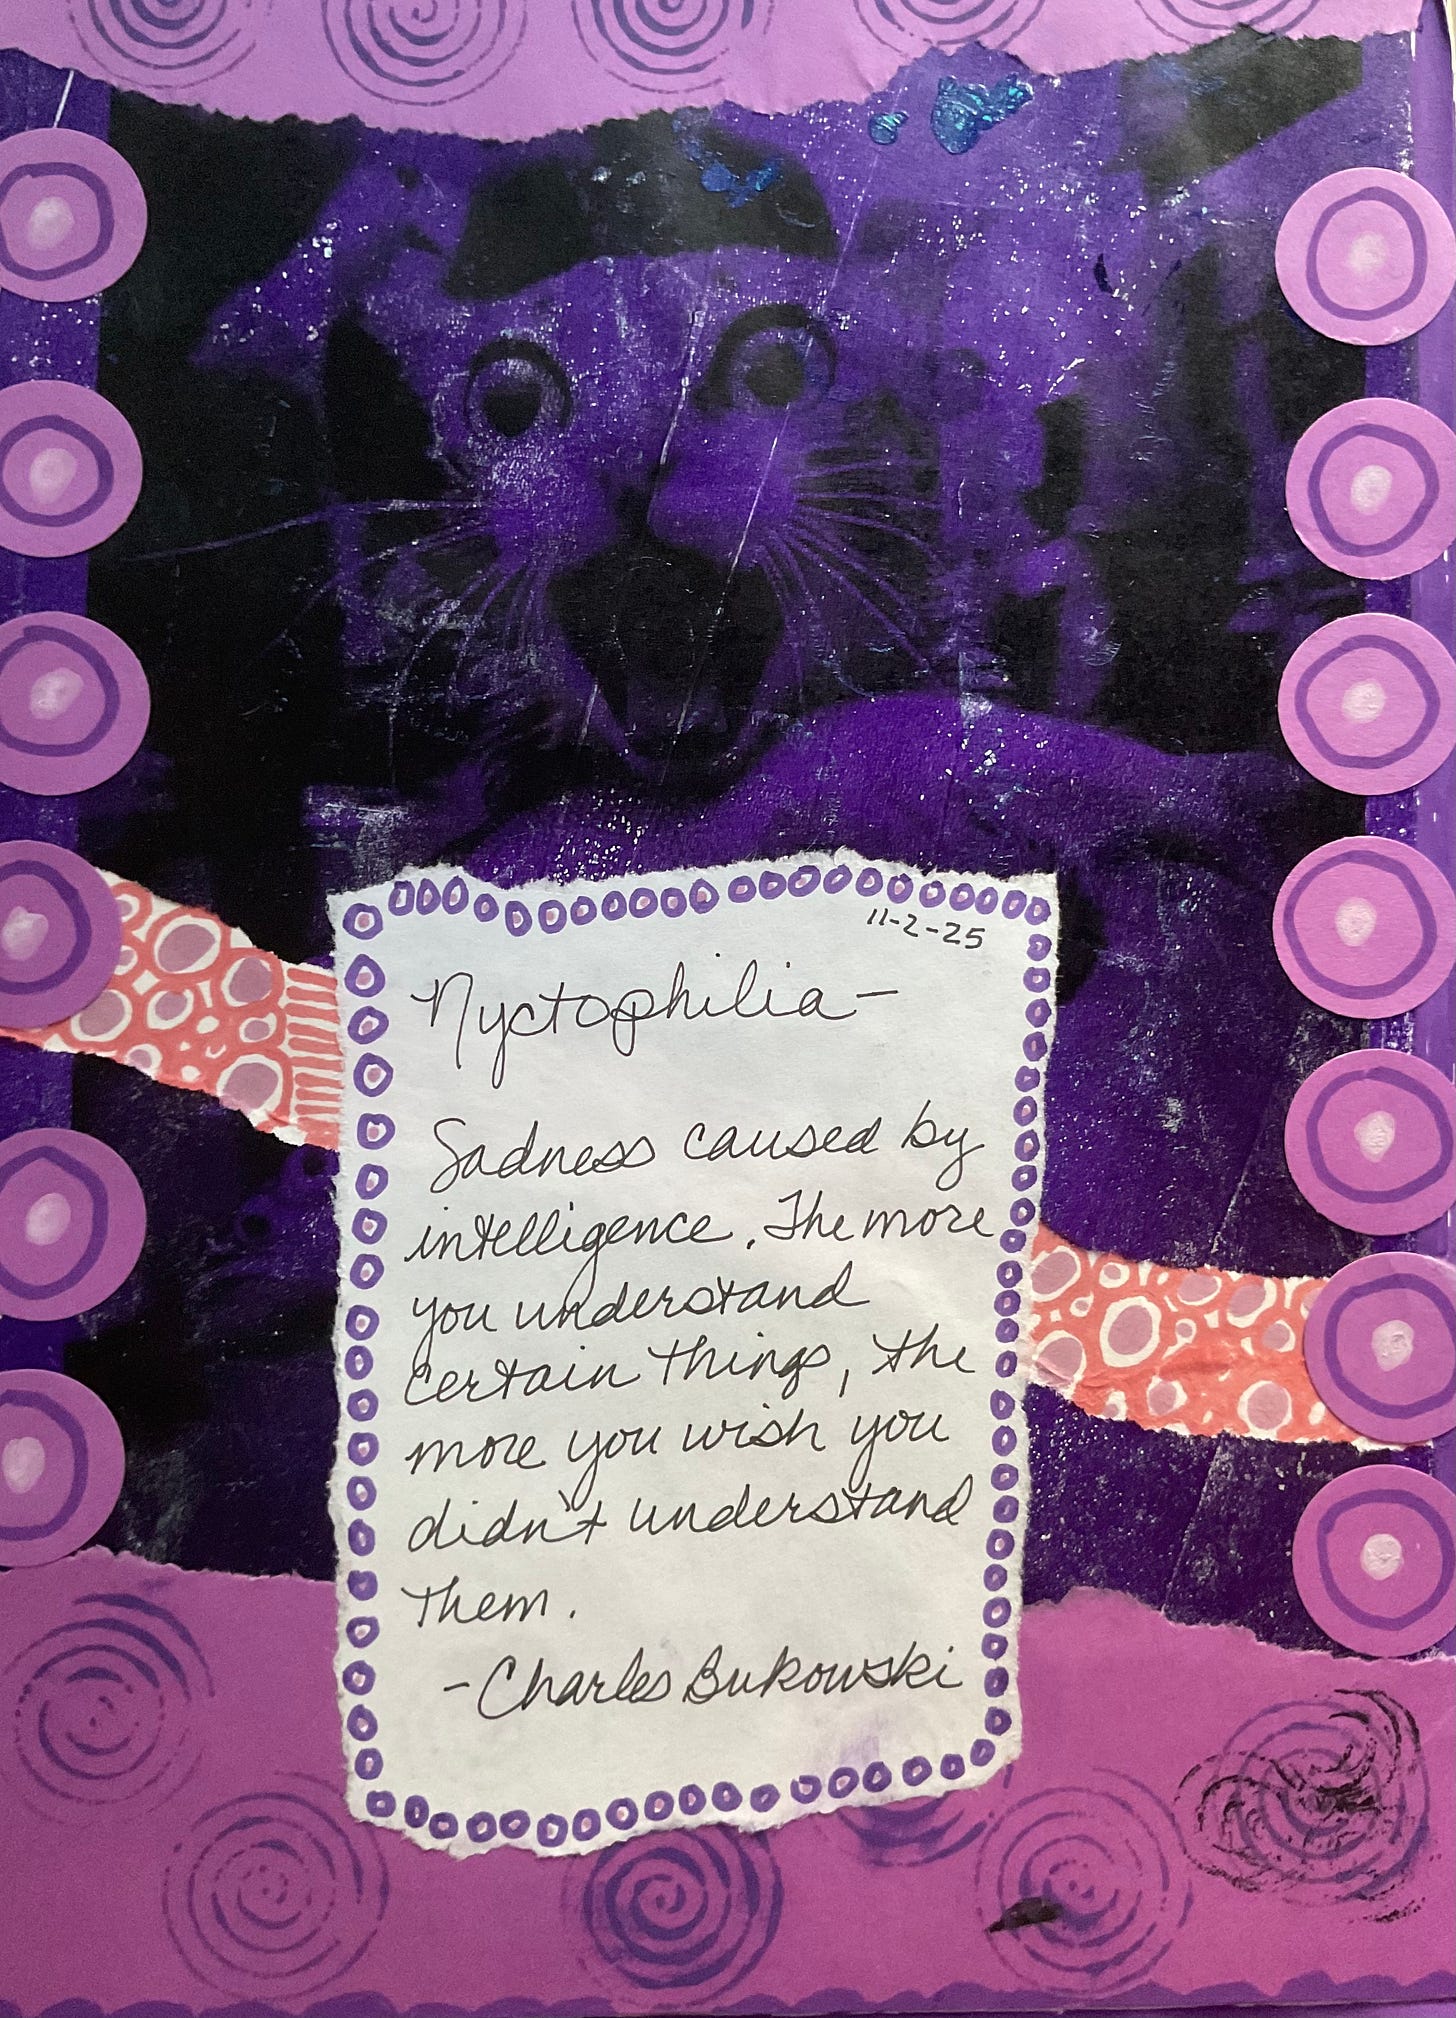 11-2-25
Nyctophilia-
Sadness caused by
intelligence. The more
you understand
certain things, the
more you wish you
didn't understand
them.
-Charles Bukowski